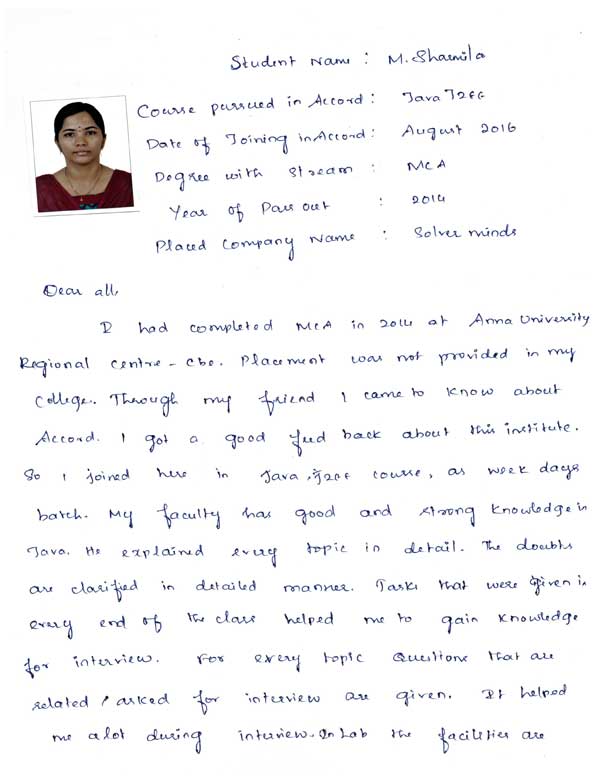 Student Name : M. Sharmila
Course pursued in Accord : Java J2EE
Date of Joining in Accord : August 2016
Degree with Stream : MCA
Year of Pass out : 2014
Placed Company Name : Solver minds
Dear all,
I had completed MCA in 2014 at Anna University
Regional Centre - Cbe. Placement was not provided in my
College. Through my friend I came to know about
Accord. I got a good feed back about this institute.
So I joined here in Java, J2EE course, as week days
batch. My faculty has good and strong knowledge in
Java. He explained every topic in detail. The doubts
are clarified in detailed manner. Tasks that were given in
every end of the class helped me to gain knowledge
for interview. For every topic Questions that are
related / asked for interview are given. It helped
me a lot during interview. In Lab the facilities are